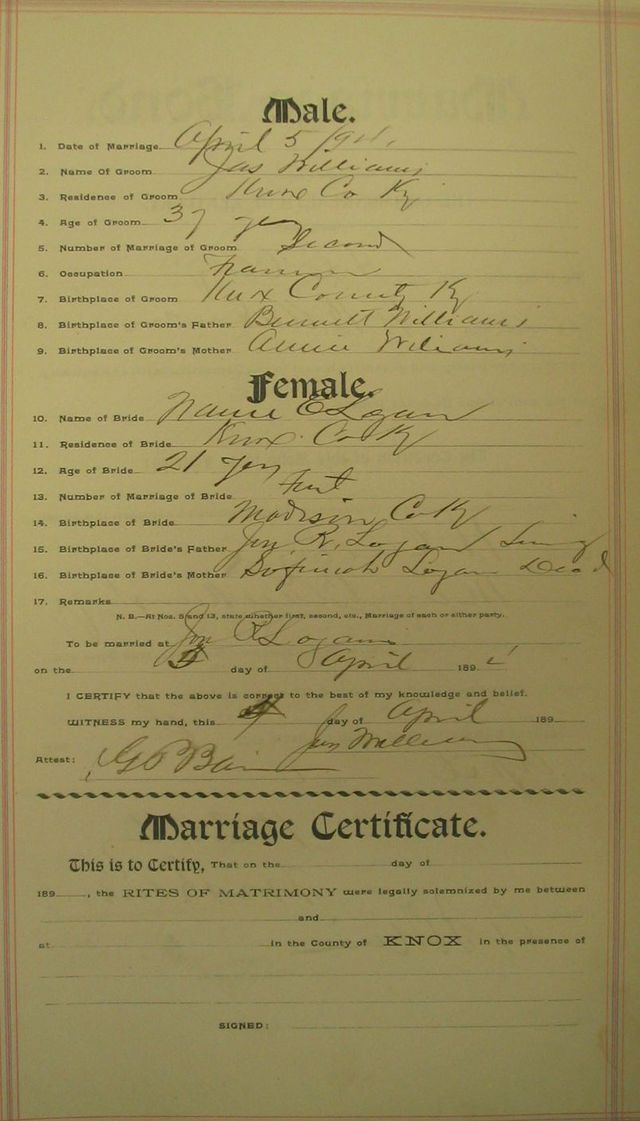 Male.
1. Date of Marriage April 5
2. Name Of Groom Jas Williams
3. Residence of Groom Knox Co Ky
4. Age of Groom 37 yrs
5. Number of Marriage of Groom Second
6. Occupation Farmer
7. Birthplace of Groom Knox County Ky
8. Birthplace of Groom's Father Bennett Williams
9. Birthplace of Groom's Mother Annie Wiliams
Female.
10. Name of Bride E Logan
11. Residence of Bride Knox Co Ky
12. Age of Bride 21 yrs
13. Number of Marriage of Bride First
14. Birthplace of Bride Madison Co Ky
15. Birthplace of Bride's Father R. Logan Living
16. Birthplace of Bride's Mother Logan Dead
17. Remarks
N. B.—At Nos. 5 and 13, state whether first, second, etc., Marriage of each or either party.
To be married at R Logans
on the 5 day of April 189
I CERTIFY that the above is correct to the best of my knowledge and belief.
WITNESS my hand, this 4 day of April 189
Jas Williams
Attest:
Marriage Certificate.
This is to Certify, That on the day of
189 , the RITES OF MATRIMONY were legally solemnized by me between
and
at in the County of KNOX in the presence of
SIGNED: